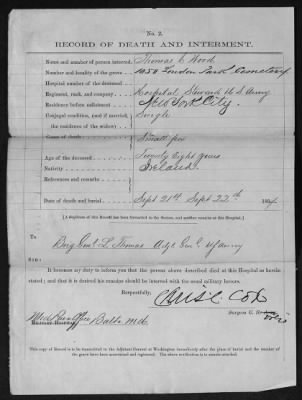 No. 2.
RECORD OF DEATH AND INTERMENT.
Name and number of person interred, Thomas C Wood
Number and locality of the grave 1058 Loudon Park Cemetery
Hospital number of the deceased
Regiment, rank, and company, Hospital Steward U S Army
Residence before enlistment New York City.
Conjugal condition, (and if married, Single
the residence of the widow)
Cause of death Small pox
Age of the deceased Twenty Eight years
Nativity Ireland
References and remarks
Date of death and burial, Sept 21st Sept 22nd 1864
[A duplicate of this Record has been forwarded to the Sexton, and another remains at this Hospital.]
To
Brig Genl L Thomas Adjt Genl U S Army
SIR:
It becomes my duty to inform you that the person above described died at this Hospital as herein
stated; and that it is desired his remains should be interred with the usual military honors.
Respectfully,
C. Cox
Surgeon U. S.
Balto Md.
This copy of Record is to be transmitted to the Adjutant General at Washington immediately after the place of burial and the number of
the grave have been ascertained and registered. The above certification is to evaschie attached.